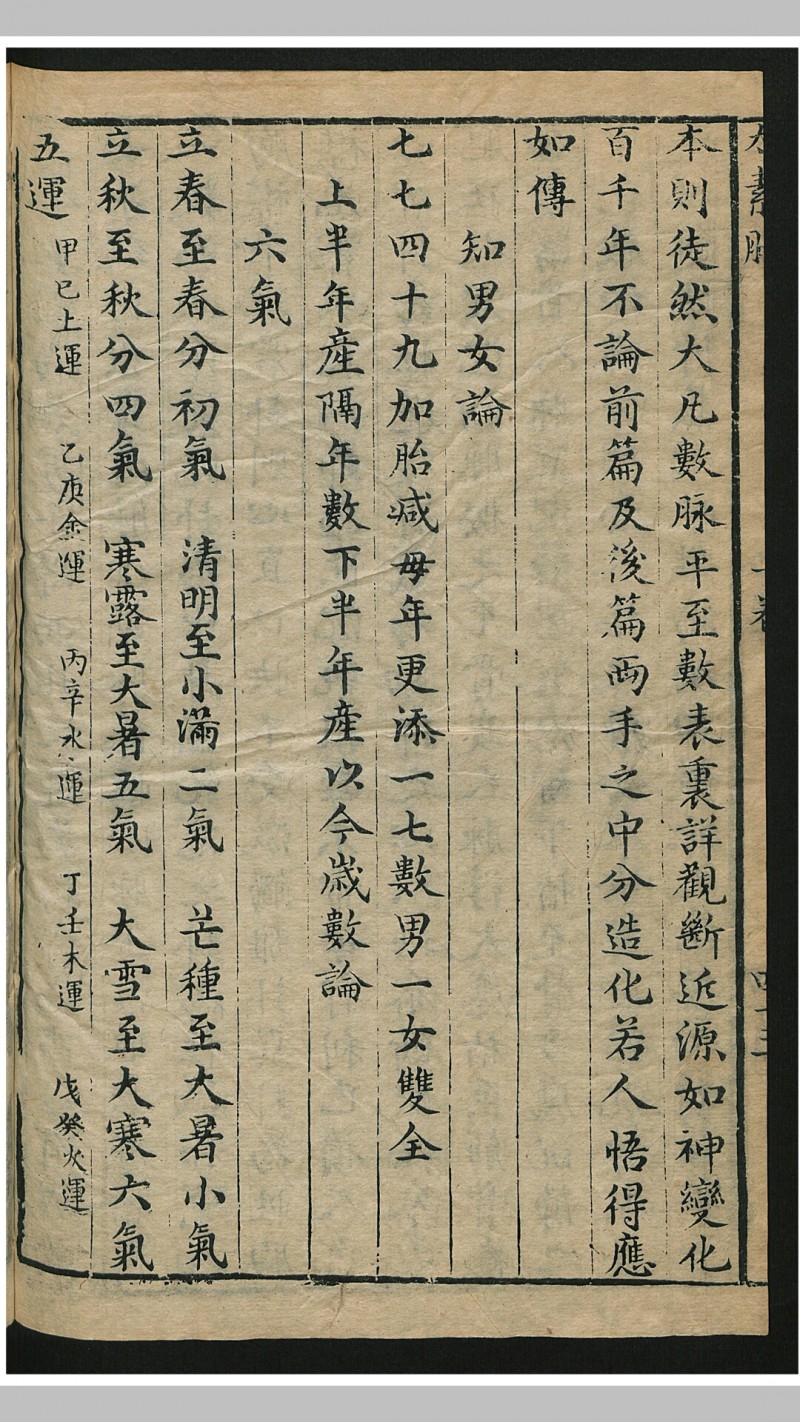 本則徒然大凡數脉平至數表裏詳觀斷近源如神變化
百千年不論前篇及後篇両手之中分造化若人悟得應
如傳
知男女論
七七四十九加胎减母年更添一七數男一女雙全
上半年産隔年數下半年産以今歲數論
六氣
立春至春分初氣　清明至小滿二氣　芒種至大暑小氣
立秋至秋分四氣　寒露至大暑五氣　大雪至大寒六氣
五運　甲巳土運　乙庚金運　丙辛水運　丁壬木運　戊癸火運